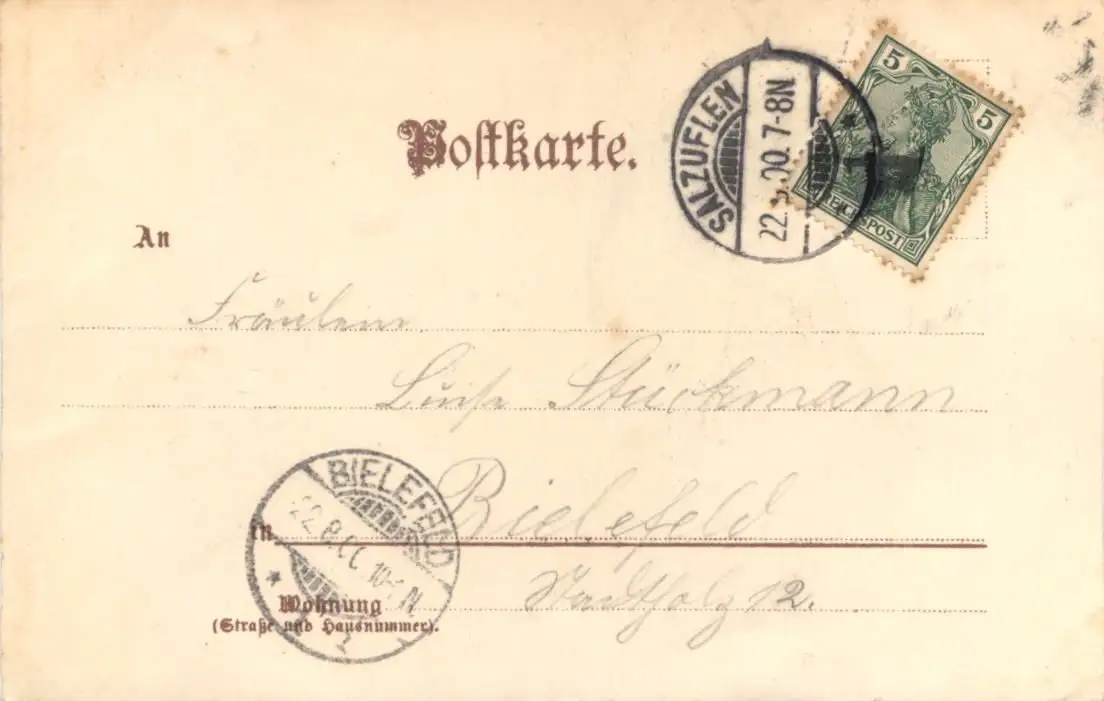 Postkarte.
SALZUFLEN
22. 8. 00. 7-8N
5 5
REICHSPOST
An
Fräulein
Luise Stückmann
BIELEFELD
22.8.
N
1
in Bielefeld
Wohnung Stadtholz 12.
(Straße und Hausnummer).